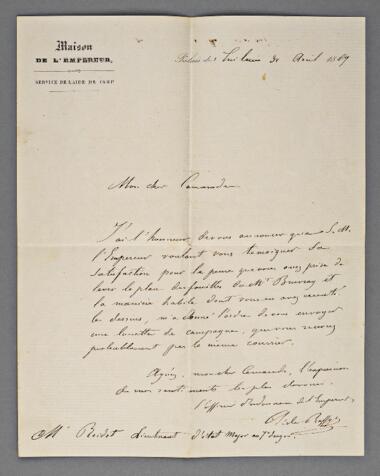 Maison
DE L'EMPEREUR,
SERVICE DE L'AIDE DE CAMP
Palais des Tuileries 30 Avril 1869
Mon cher Camarade
J'ai l'honneur de vous annoncer que S. M.
l'Empereur voulant vous temoigner sa
satisfaction pour la peine que vous avez prise de
lever le plan des fouilles de Mr
la manière habile dont vous en avez executé
les dessins, m'a donné l'ordre de vous envoyer
une lunette de campagne, que vous recevrez
probablement par le même courrier.
Agréez, mon cher Camarade, l'expression
de mes sentiments les plus devoués.
l'officier d'ordonnance de l'Empereur,
Mr lieutenant d'Etat Major au 7e